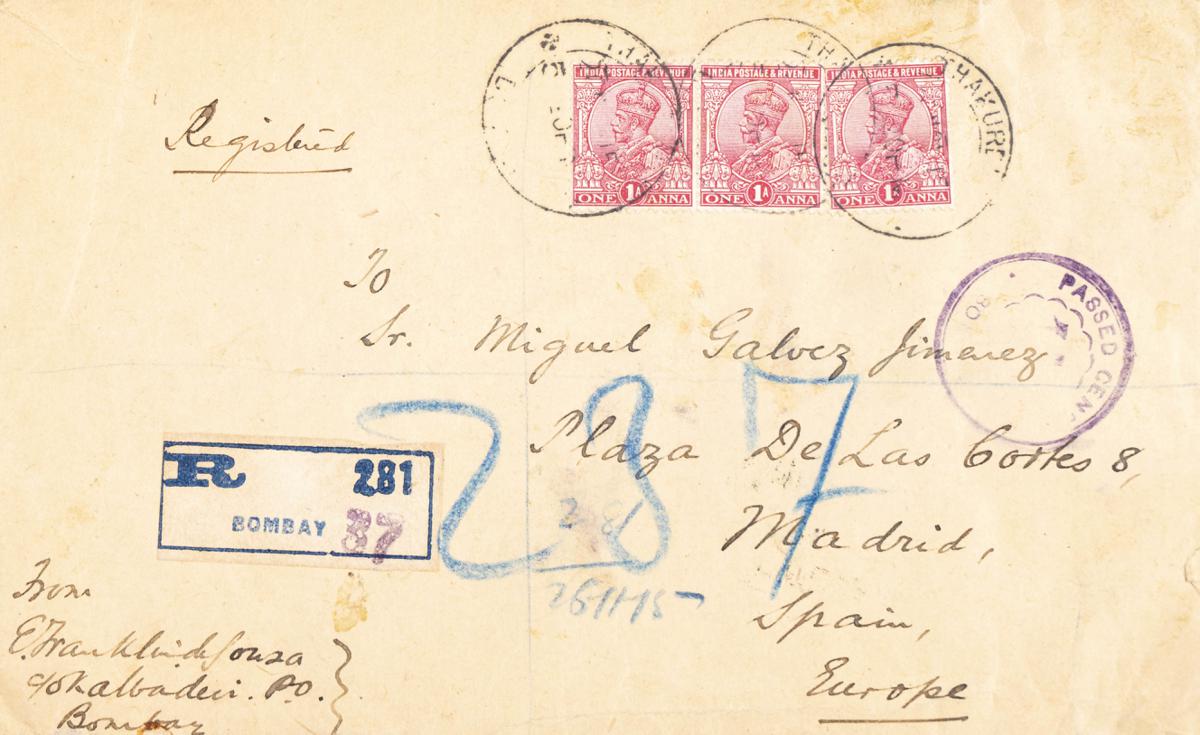 Registered
INDIA POSTAGE & REVENUE
1A
ONE ANNA
INDIA POSTAGE & REVENUE
1A
ONE ANNA
INDIA POSTAGE & REVENUE
1A
ONE ANNA
THAKURD
PASSED CENS
To
Sr. Miguel Galvez Jimenez
Plaza De Las Cortes 8,
Madrid,
Spain,
Europe
R 281
BOMBAY 37
287
281
From
E. Franklin de Souza
c/o Kalbadevi. P.O.
Bombay